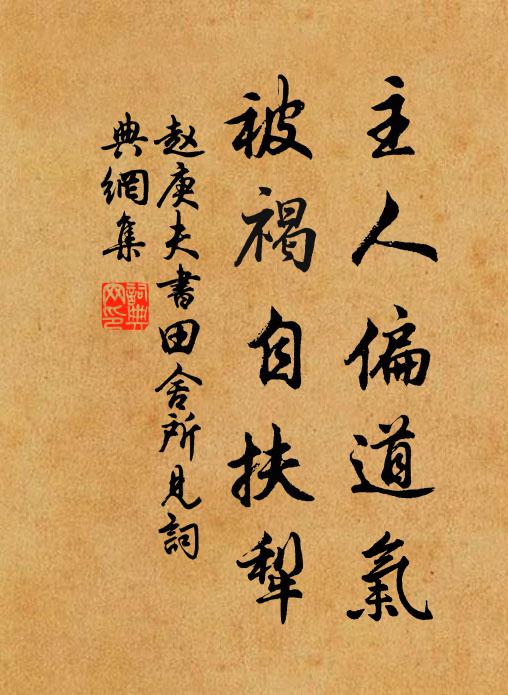 主人偏道氣
被褐自扶犁
赵庚夫書田舍所見詞
典網集
詞典網印